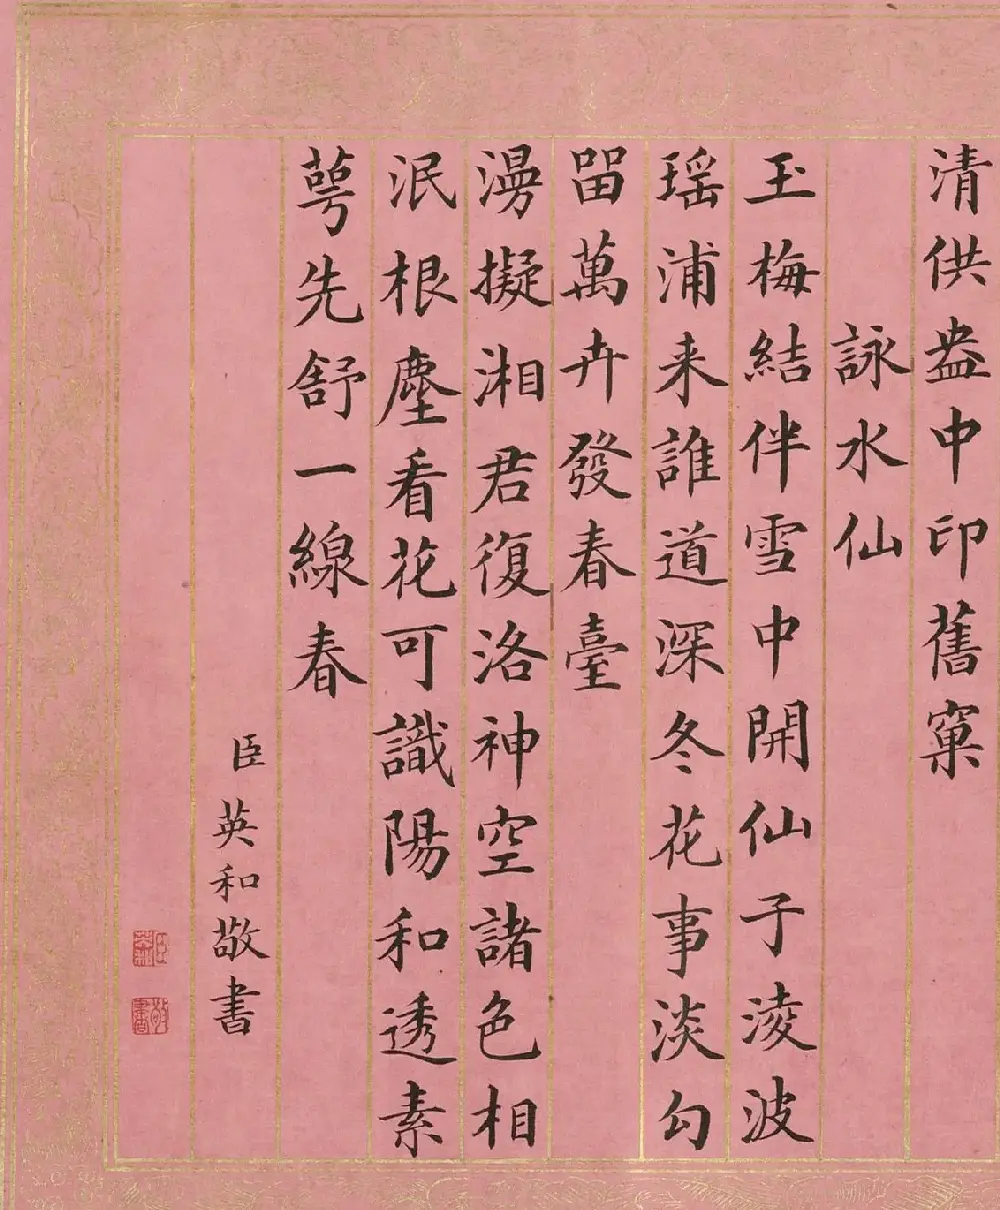 清供盎中印舊窠
詠水仙
玉梅結伴雪中開仙子淩波
瑶浦来誰道深冬花事淡勾
留萬卉發春臺
漫擬湘君復洛神空諸色相
泯根塵看花可識陽和透素
萼先舒一線春
臣英和敬書
臣英
敬書